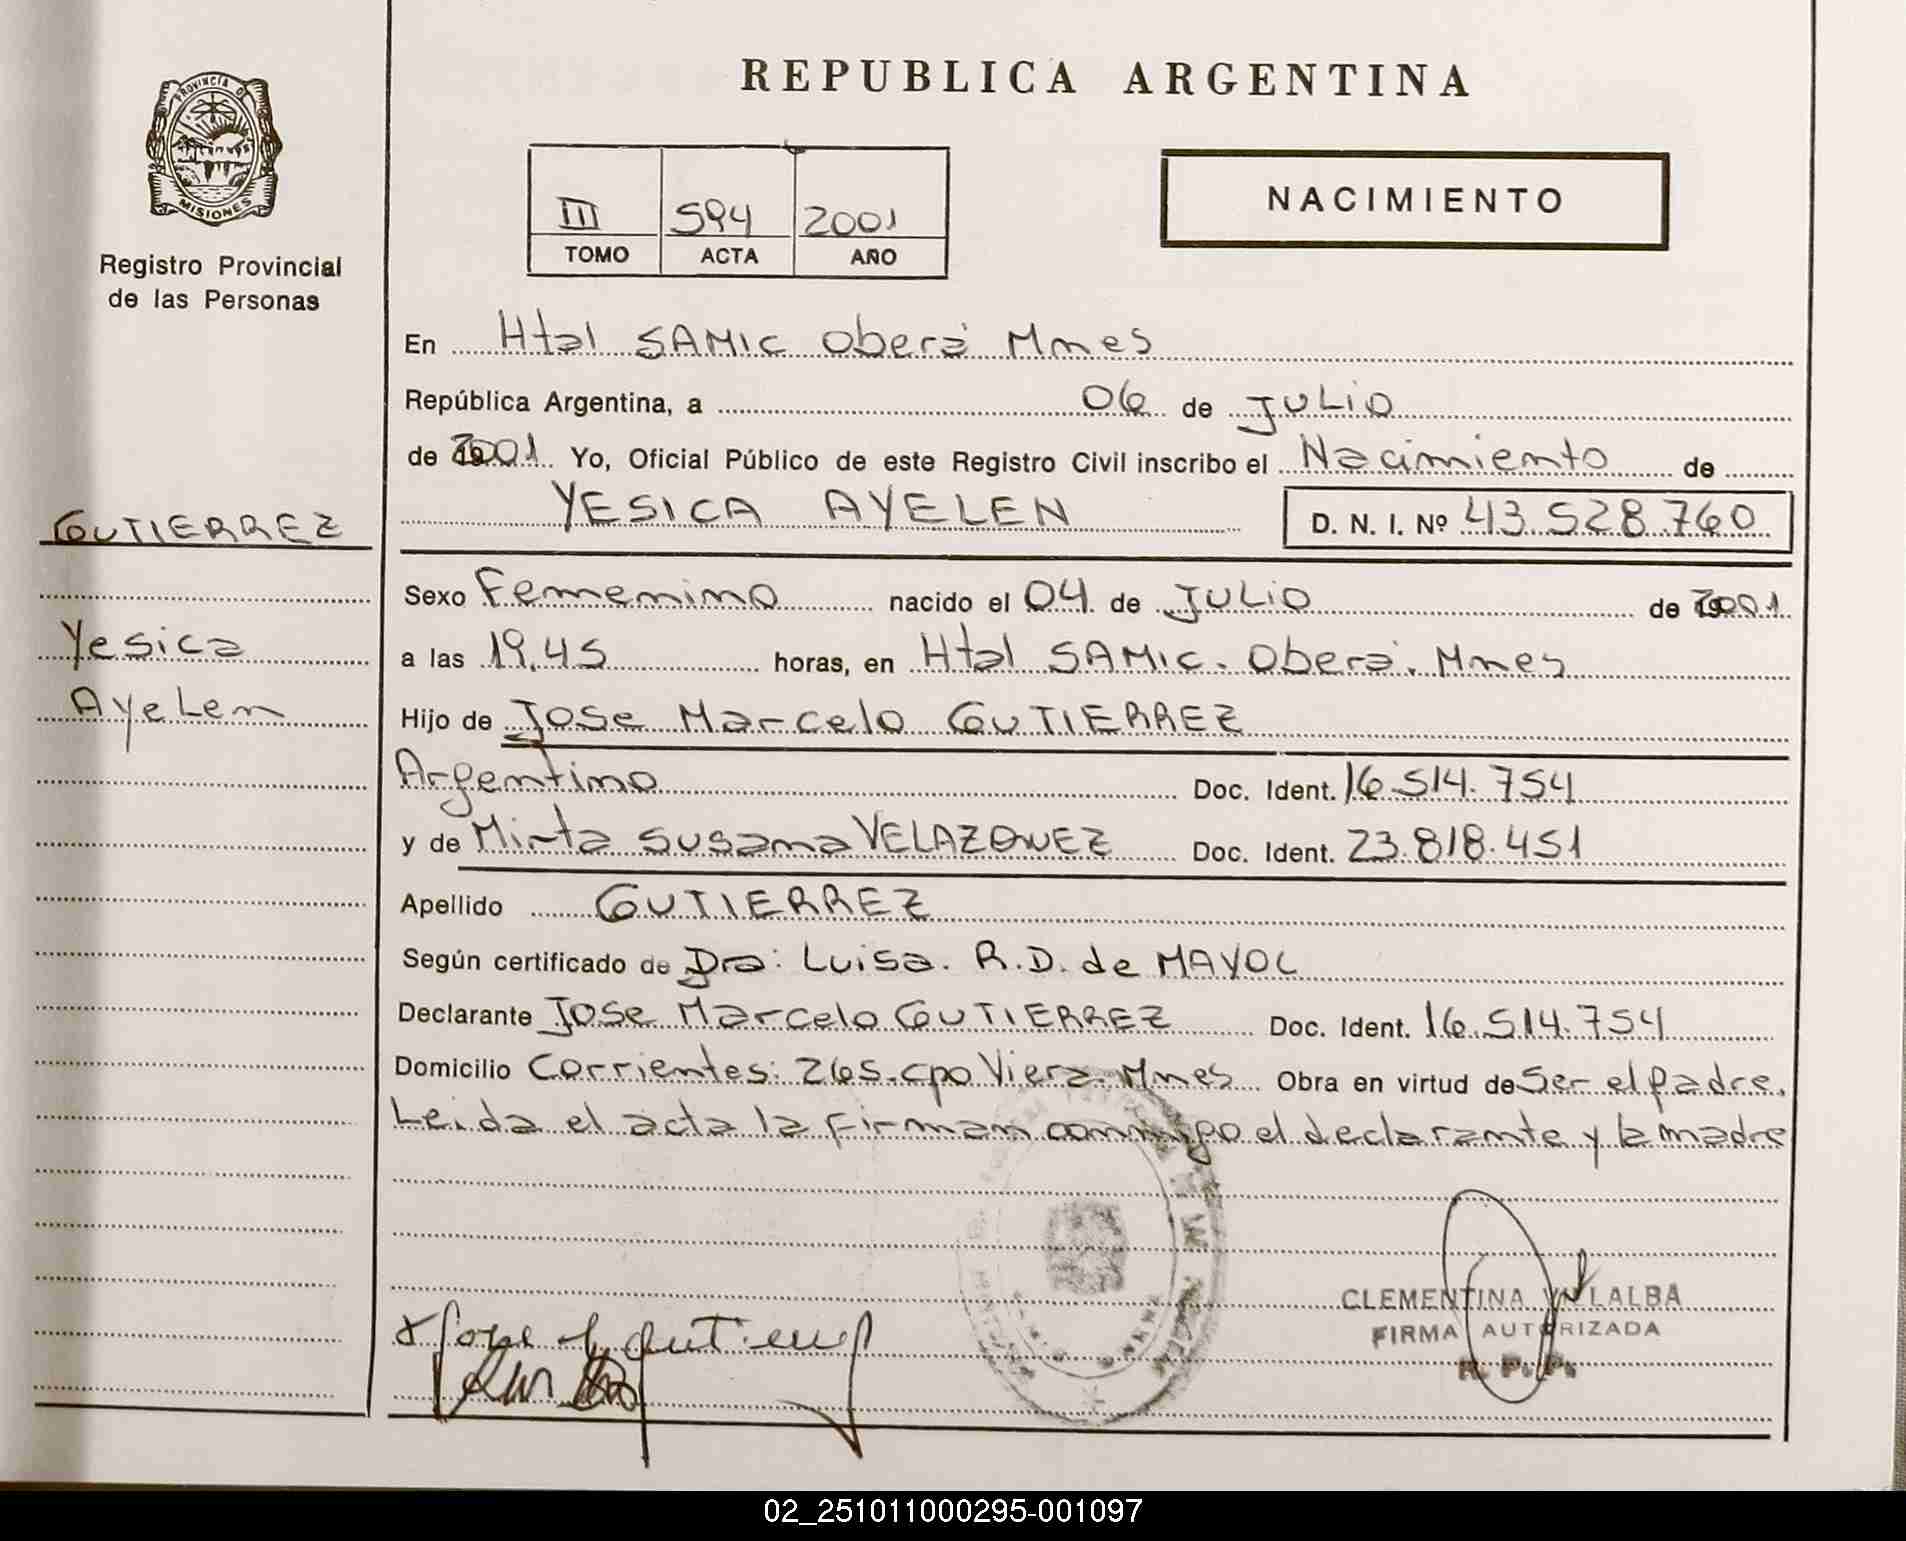 PROVINCIA DE
MISIONES
Registro Provincial
de las Personas
GUTIERREZ
Yesica
Ayelen
REPUBLICA ARGENTINA
III 594 2001
TOMO ACTA AÑO
NACIMIENTO
En Htal SAMIC Oberá Mnes
República Argentina, a 06 de JULIO
de 2001 Yo, Oficial Público de este Registro Civil inscribo el Nacimiento de
YESICA AYELEN D. N. I. Nº 43.528.760
Sexo Femenino nacido el 04 de JULIO de 2001
a las 19,45 horas, en Htal SAMIC. Oberá. Mnes
Hijo de Jose Marcelo GUTIERREZ
Argentino Doc. Ident. 16.514.754
y de Mirta Susana VELAZQUEZ Doc. Ident. 23.818.451
Apellido GUTIERREZ
Según certificado de Dra: Luisa. R.D. de MAYOL
Declarante Jose Marcelo GUTIERREZ Doc. Ident. 16.514.754
Domicilio Corrientes: 265. cpo Viera. Mnes Obra en virtud de Ser el padre.
Leida el acta la firman conmigo el declarante y la madre
CLEMENTINA VILLALBA
FIRMA AUTORIZADA
R. P. P.
02_251011000295-001097